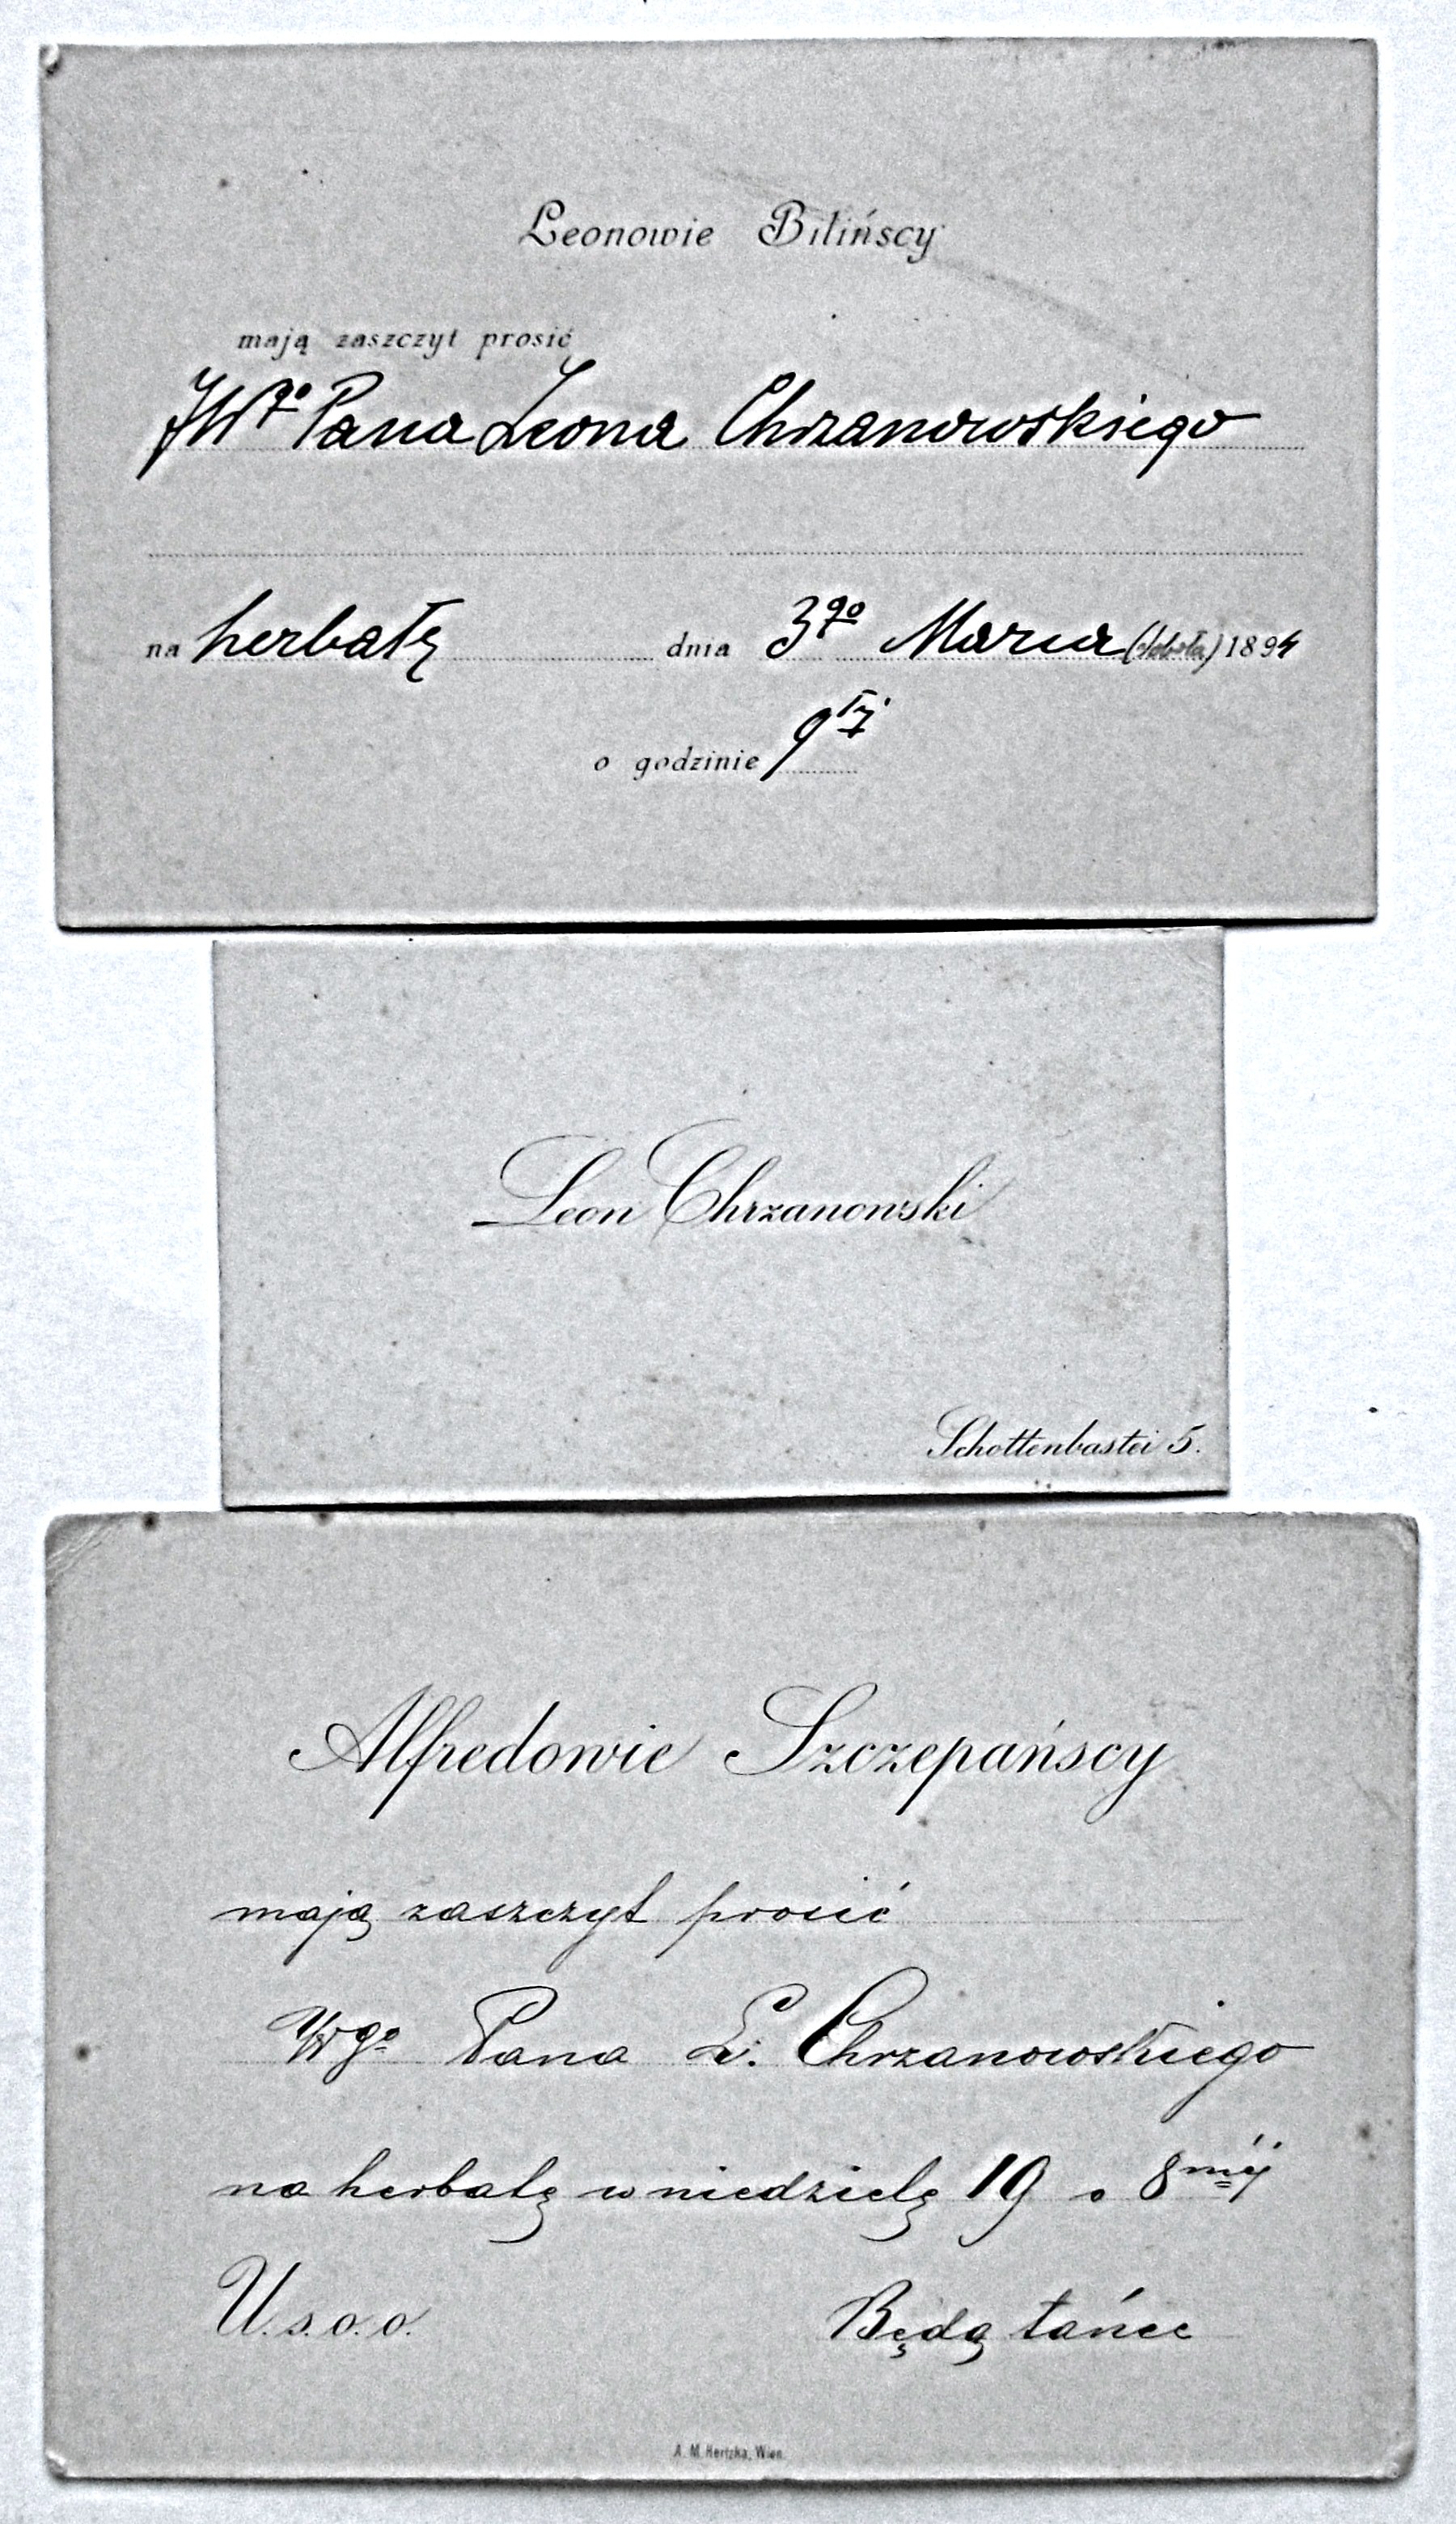 Leonowie Biliński
mają zaszczyt prosić
JWgo Pana Leona Chrzanowskiego
na herbatę dnia 3go Marca (sobota) 1894
o godzinie 9tej
Leon Chrzanowski
Schottenbastei 5.
Alfredowie Szczepańscy
mają zaszczyt prosić
Wgo Pana L. Chrzanowskiego
na herbatę w niedzielę 19 o 8méj
U. s. o. o.
Będą tańce
A. M. Hertzka, Wien.